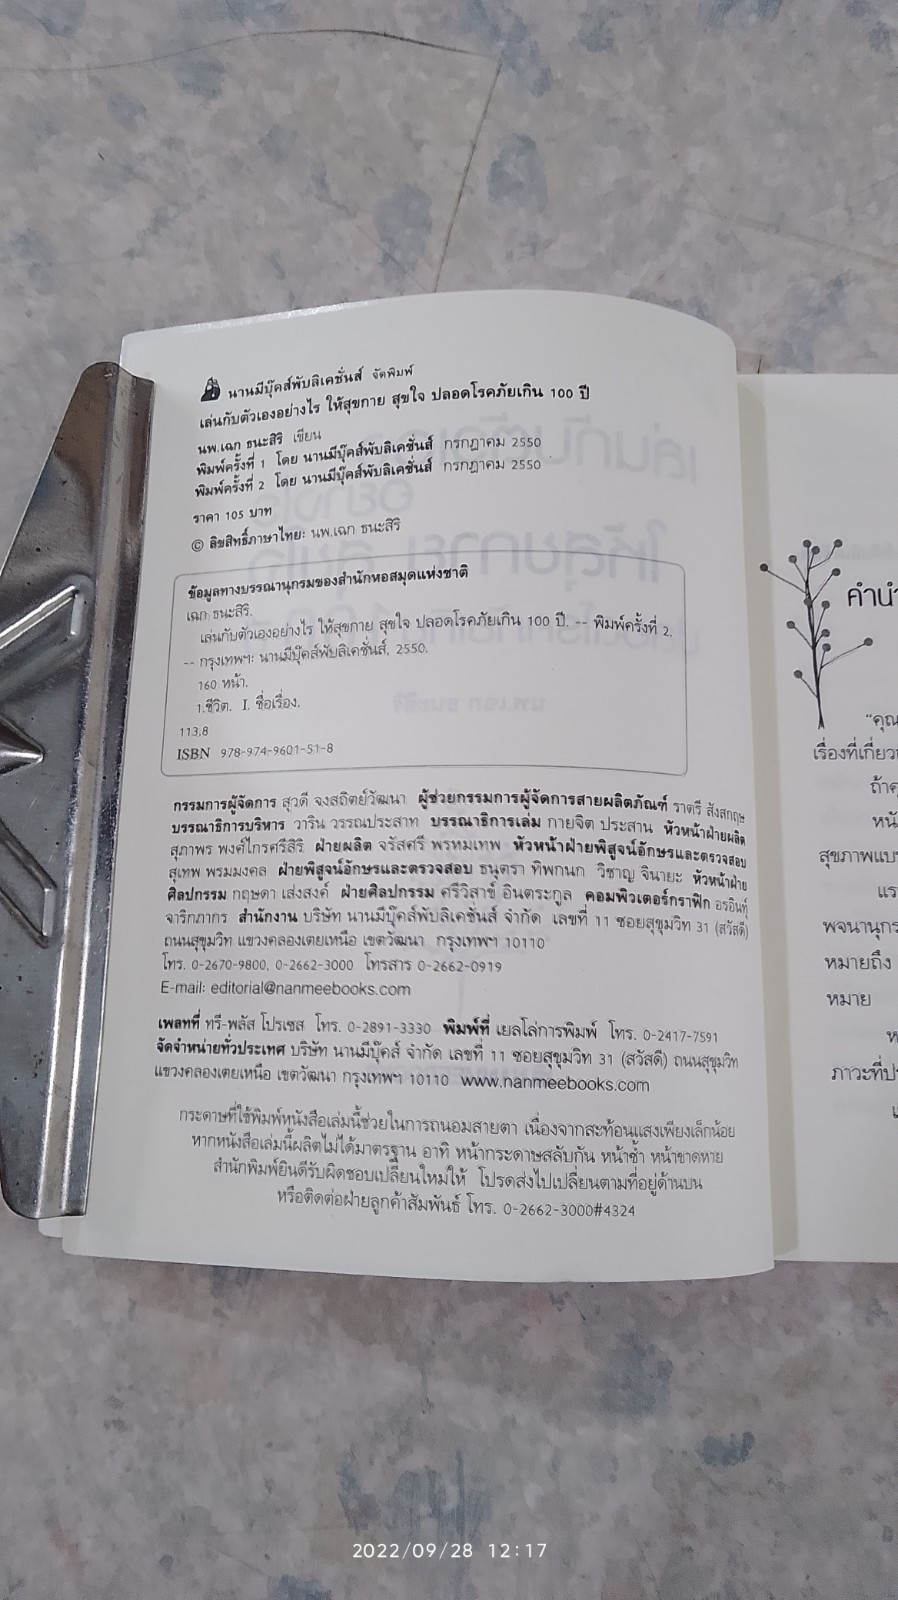 นานมีบุ๊คส์พับลิเคชั่นส์ จัดพิมพ์
เล่นกับตัวเองอย่างไร ให้สุขกาย สุขใจ ปลอดโรคภัยเกิน 100 ปี
นพ.เฉก ธนะสิริ เขียน
พิมพ์ครั้งที่ 1 โดย นานมีบุ๊คส์พับลิเคชั่นส์ กรกฎาคม 2550
พิมพ์ครั้งที่ 2 โดย นานมีบุ๊คส์พับลิเคชั่นส์ กรกฎาคม 2550
ราคา 105 บาท
© ลิขสิทธิ์ภาษาไทย: นพ.เฉก ธนะสิริ
ข้อมูลทางบรรณานุกรมของสำนักหอสมุดแห่งชาติ
เฉก ธนะสิริ.
เล่นกับตัวเองอย่างไร ให้สุขกาย สุขใจ ปลอดโรคภัยเกิน 100 ปี. -- พิมพ์ครั้งที่ 2.
-- กรุงเทพฯ: นานมีบุ๊คส์พับลิเคชั่นส์, 2550.
160 หน้า.
1.ชีวิต. I. ชื่อเรื่อง.
113.8
ISBN 978-974-9601-51-8
กรรมการผู้จัดการ สุวดี จงสถิตย์วัฒนา ผู้ช่วยกรรมการผู้จัดการสายผลิตภัณฑ์ ราตรี สังสกฤษ
บรรณาธิการบริหาร วาริน วรรณประสาท บรรณาธิการเล่ม กายจิต ประสาน หัวหน้าฝ่ายผลิต
สุภาพร พงศ์ไกรศรีสิริ ฝ่ายผลิต จรัสศรี พรหมเทพ หัวหน้าฝ่ายพิสูจน์อักษรและตรวจสอบ
สุเทพ พรมมงคล ฝ่ายพิสูจน์อักษรและตรวจสอบ ธนุตรา ทิพกนก วิชาญ จินายะ หัวหน้าฝ่าย
ศิลปกรรม กฤษดา เส่งสงค์ ฝ่ายศิลปกรรม ศรีวิสาข์ อินตระกูล คอมพิวเตอร์กราฟิก อรอินทุ์
จาริกภากร สำนักงาน บริษัท นานมีบุ๊คส์พับลิเคชั่นส์ จำกัด เลขที่ 11 ซอยสุขุมวิท 31 (สวัสดี)
ถนนสุขุมวิท แขวงคลองเตยเหนือ เขตวัฒนา กรุงเทพฯ 10110
โทร. 0-2670-9800, 0-2662-3000 โทรสาร 0-2662-0919
E-mail: editorial@nanmeebooks.com
เพลทที่ ทรี-พลัส โปรเซส โทร. 0-2891-3330 พิมพ์ที่ เยลโล่การพิมพ์ โทร. 0-2417-7591
จัดจำหน่ายทั่วประเทศ บริษัท นานมีบุ๊คส์ จำกัด เลขที่ 11 ซอยสุขุมวิท 31 (สวัสดี) ถนนสุขุมวิท
แขวงคลองเตยเหนือ เขตวัฒนา กรุงเทพฯ 10110 www.nanmeebooks.com
กระดาษที่ใช้พิมพ์หนังสือเล่มนี้ช่วยในการถนอมสายตา เนื่องจากสะท้อนแสงเพียงเล็กน้อย
หากหนังสือเล่มนี้ผลิตไม่ได้มาตรฐาน อาทิ หน้ากระดาษสลับกัน หน้าซ้ำ หน้าขาดหาย
สำนักพิมพ์ยินดีรับผิดชอบเปลี่ยนใหม่ให้ โปรดส่งไปเปลี่ยนตามที่อยู่ด้านบน
หรือติดต่อฝ่ายลูกค้าสัมพันธ์ โทร. 0-2662-3000#4324
คำนำ
"คุณ
เรื่องที่เกี่ยว
ถ้าค
หนัง
สุขภาพแบ
แร
พจนานุกร
หมายถึง
หมาย
ห
ภาวะที่ปร
2022/09/28 12:17